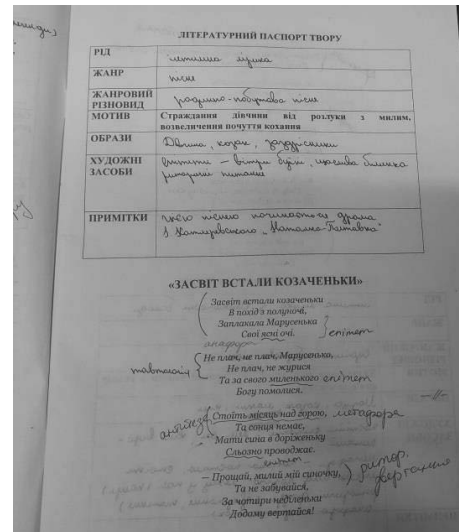 ЛІТЕРАТУРНИЙ ПАСПОРТ ТВОРУ
РІД інтимна лірика
ЖАНР пісня
ЖАНРОВИЙ РІЗНОВИД родинно-побутова пісня
МОТИВ Страждання дівчини від розлуки з милим,
возвеличення почуття кохання
ОБРАЗИ Дівчина, козак, заздрісники
ХУДОЖНІ ЗАСОБИ епітети – вітри буйні, щаслива билинка
риторичні питання
ПРИМІТКИ цією піснею починається драма
І. Котляревського „Наталка-Полтавка"
«ЗАСВІТ ВСТАЛИ КОЗАЧЕНЬКИ»
Засвіт встали козаченьки
В похід з полуночі,
Заплакала Марусенька
Свої ясні очі. епітет
анафора
Не плач, не плач, Марусенько,
Не плач, не журися
тавтологія
Та за свого миленького епітет
Богу помолися.
Стоїть місяць над горою, метафора
антитеза
Та сонця немає,
–//–
Мати сина в доріженьку
Сльозно проводжає.
епітет
– Прощай, милий мій синочку, ритор.
Та не забувайся, звертання
За чотири неділеньки
Додому вертайся!